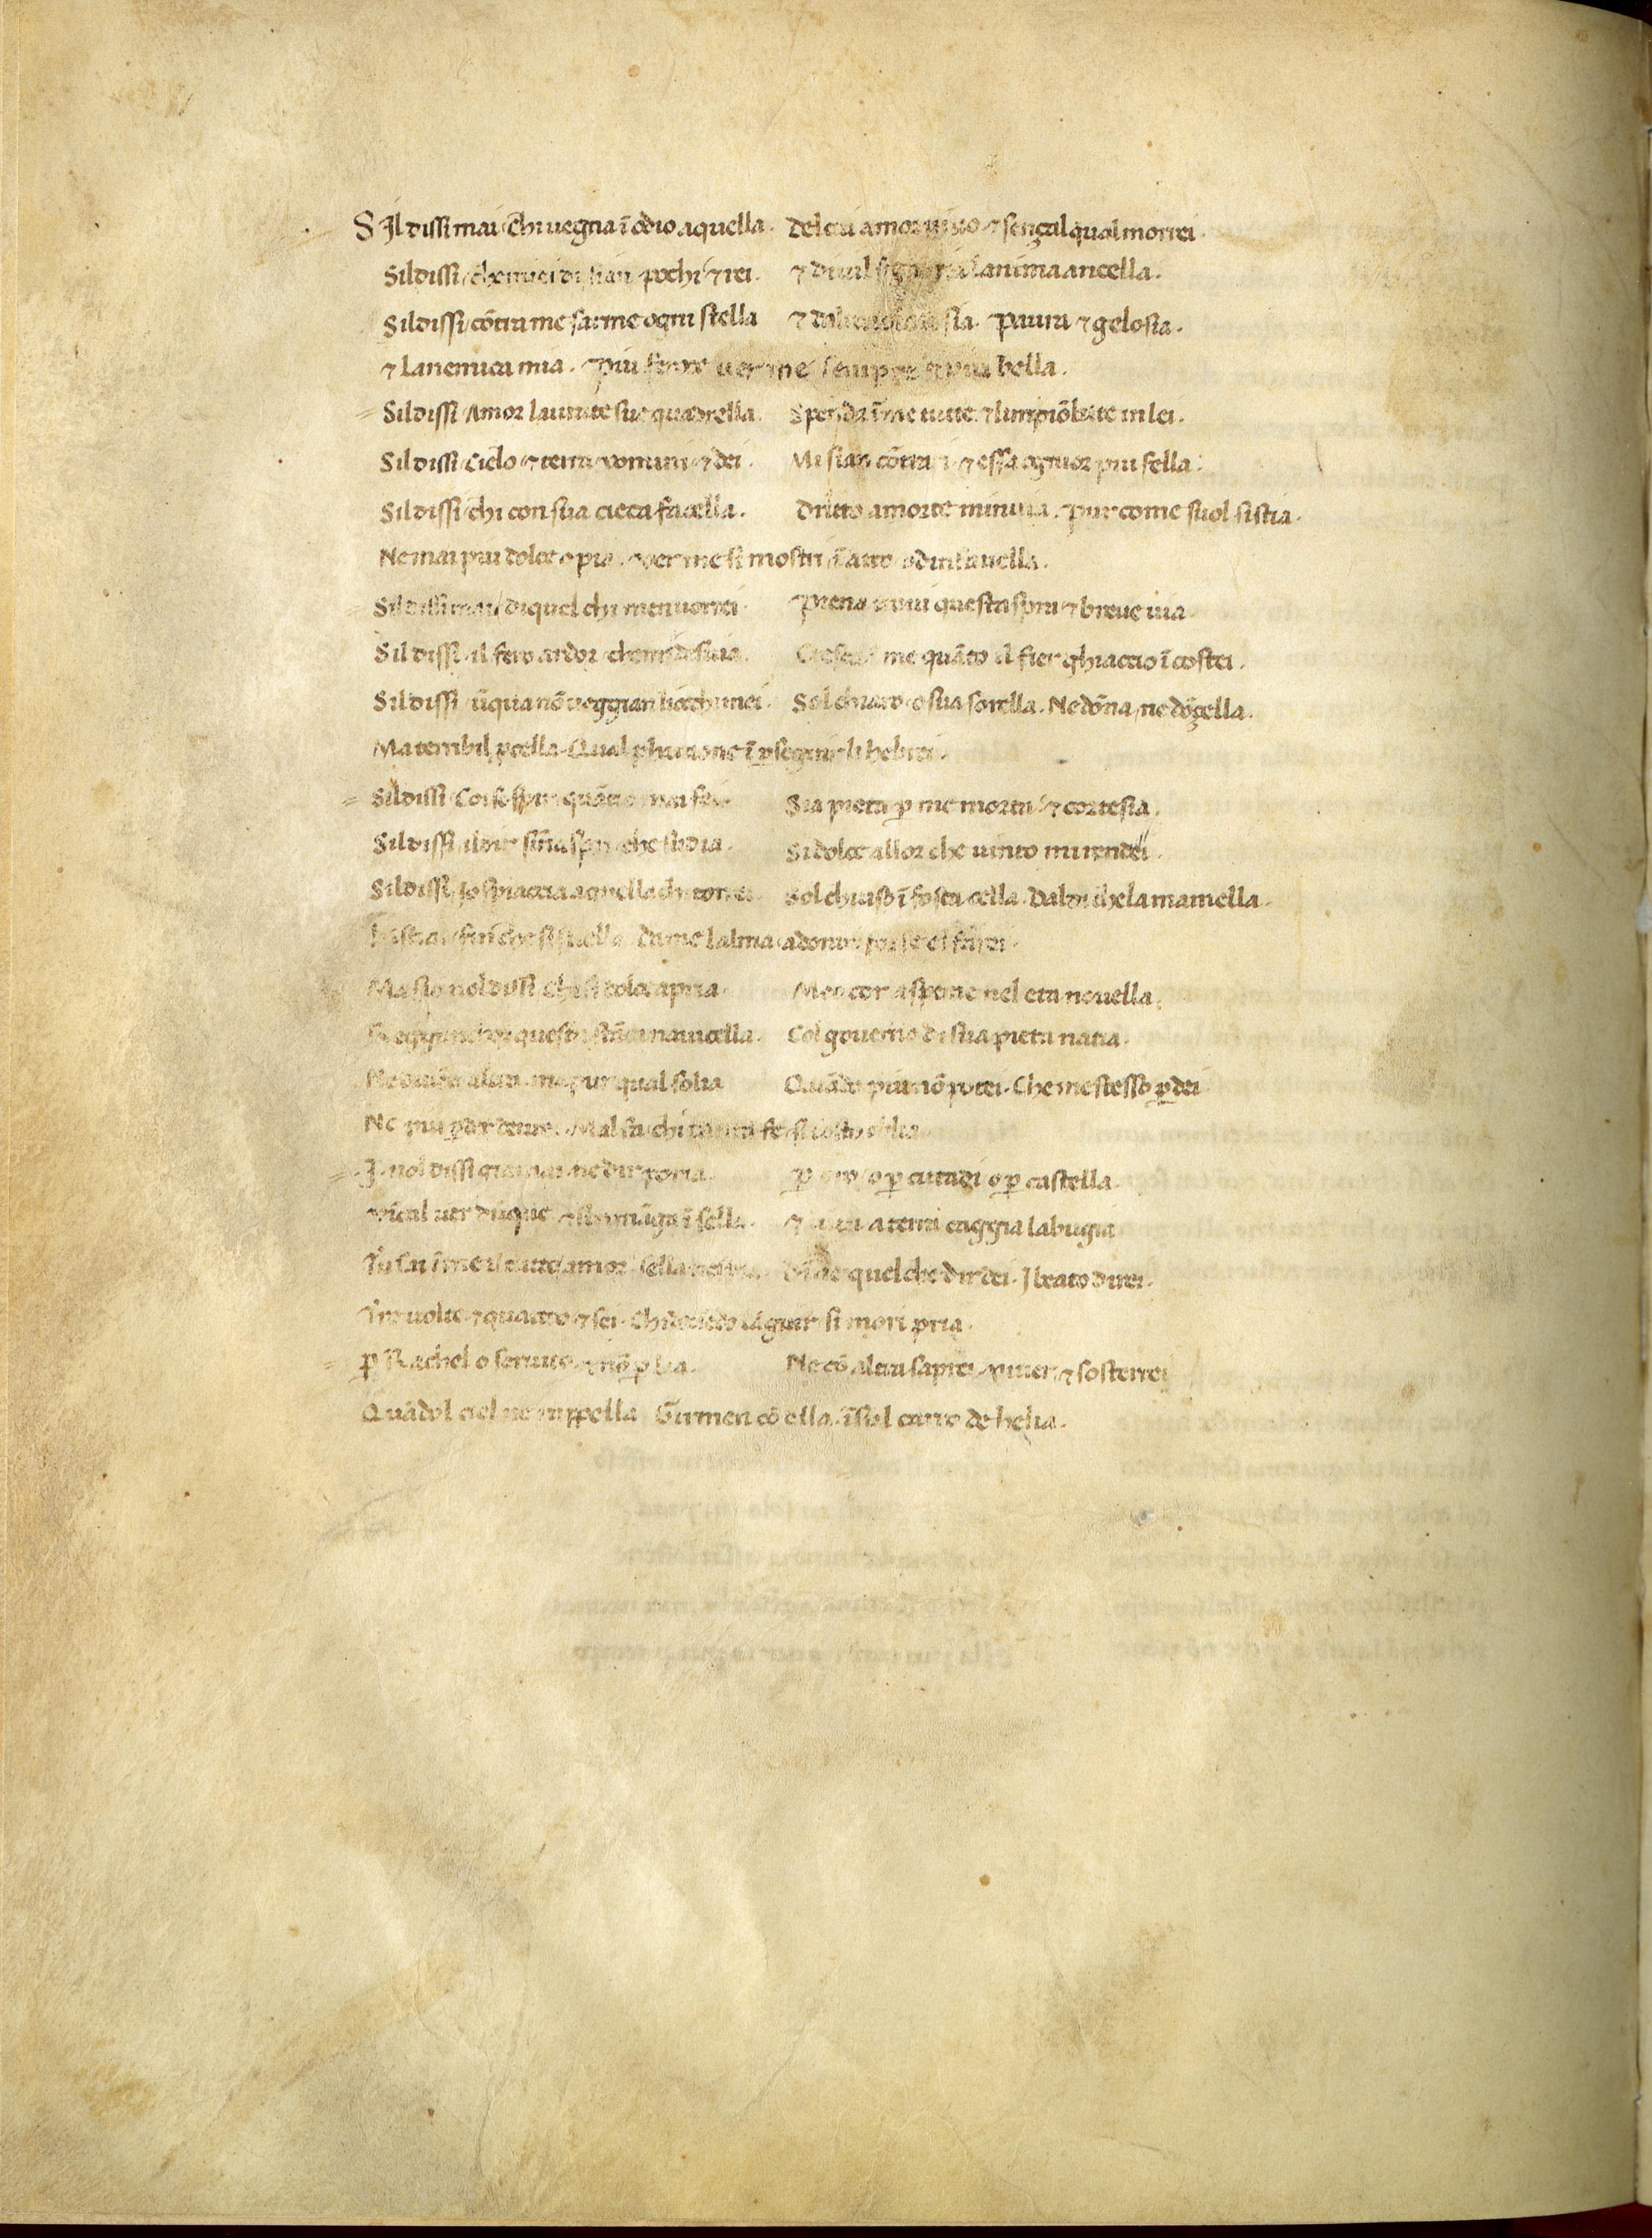 S Jl dissi mai / Chi uegna ĩ odio aquella. Del cui amor uiuo ⁊ sençal qual morrei.
Sil dissi / che miei di sian pochi / ⁊ rei. ⁊ diuil lanima ancella.
Sil dissi / cōtra me sarme ogni stella ⁊ dal sia. Paura ⁊ gelosia.
⁊ lanemica mia. Piu feroce uer me sempre ⁊ piu bella.
Sil dissi / Amor laurate sue quadrella. Spenda ĩ me tutte. ⁊ limpiōbate in lei.
Sil dissi / Cielo ⁊ terra uomini ⁊ dei. Mi sian cōtrari ⁊ essa ognior piu fella.
Sil dissi / chi con sua cieca facella. Dritto amorte minuia. Pur come suol sistia.
Ne mai piu dolce o pia. uer me si mostri ĩ atto o dinfauella.
Sil dissi mai / di quel chi men uorrei. Piena troui questaspra ⁊ breue uia.
Sil dissi il fero ardor che mi desuia. Cresca me quāto il fier ghiaccio ĩ costei.
Sil dissi ūqua nō ueggian liocchi miei. Sol chiaro o sua sorella. Ne dōna / ne dōçella.
Ma terribil pcella. Qual pharaone ĩ pseguir li hebrei.
Sil dissi / Coi sospir quāto mai fei Sia pieta p me morta / ⁊ cortesia.
Sil dissi il dir sinaspri che sudia. Si dolce allor che uinto mi rendei.
Sil dissi Io spiaccia aquella chi torrei Sol chiuso ĩ fosca cella. Dal di che la mamella
 si suella da me lalma adorar forse el farei.
Ma sio nol dissi chi si dolce apria. Meo cor aspeme nel eta nouella.
Regga questa stāca nauicella. Col gouerno di sua pieta natia.
Ne diuēti altra. ma pur qual solia Quādo piu nō potei. Che me stesso pdei
Ne piu pder deurei. Mal fa chi tanta fe si tosto oblia
J nol dissi giamai. ne dir poria. P oro / o p cittadi o p castella.
Vical uer dūque ⁊ si rimāga ĩ sella. ⁊ uinta a terra caggia la bugia
Tu sai ĩ me il tutto amor sella Dine quel che dir dei. J beato direi.
Tre uolte ⁊ quattro ⁊ sei. Chi deuēdo lāguir si mori pria.
P Rachel o seruito. ⁊ nō p lia. Ne cō altra saprei. uiuer ⁊ sosterrei
Quādol ciel ne rappella Girmen cō ella. ĩ sul carro de helia.